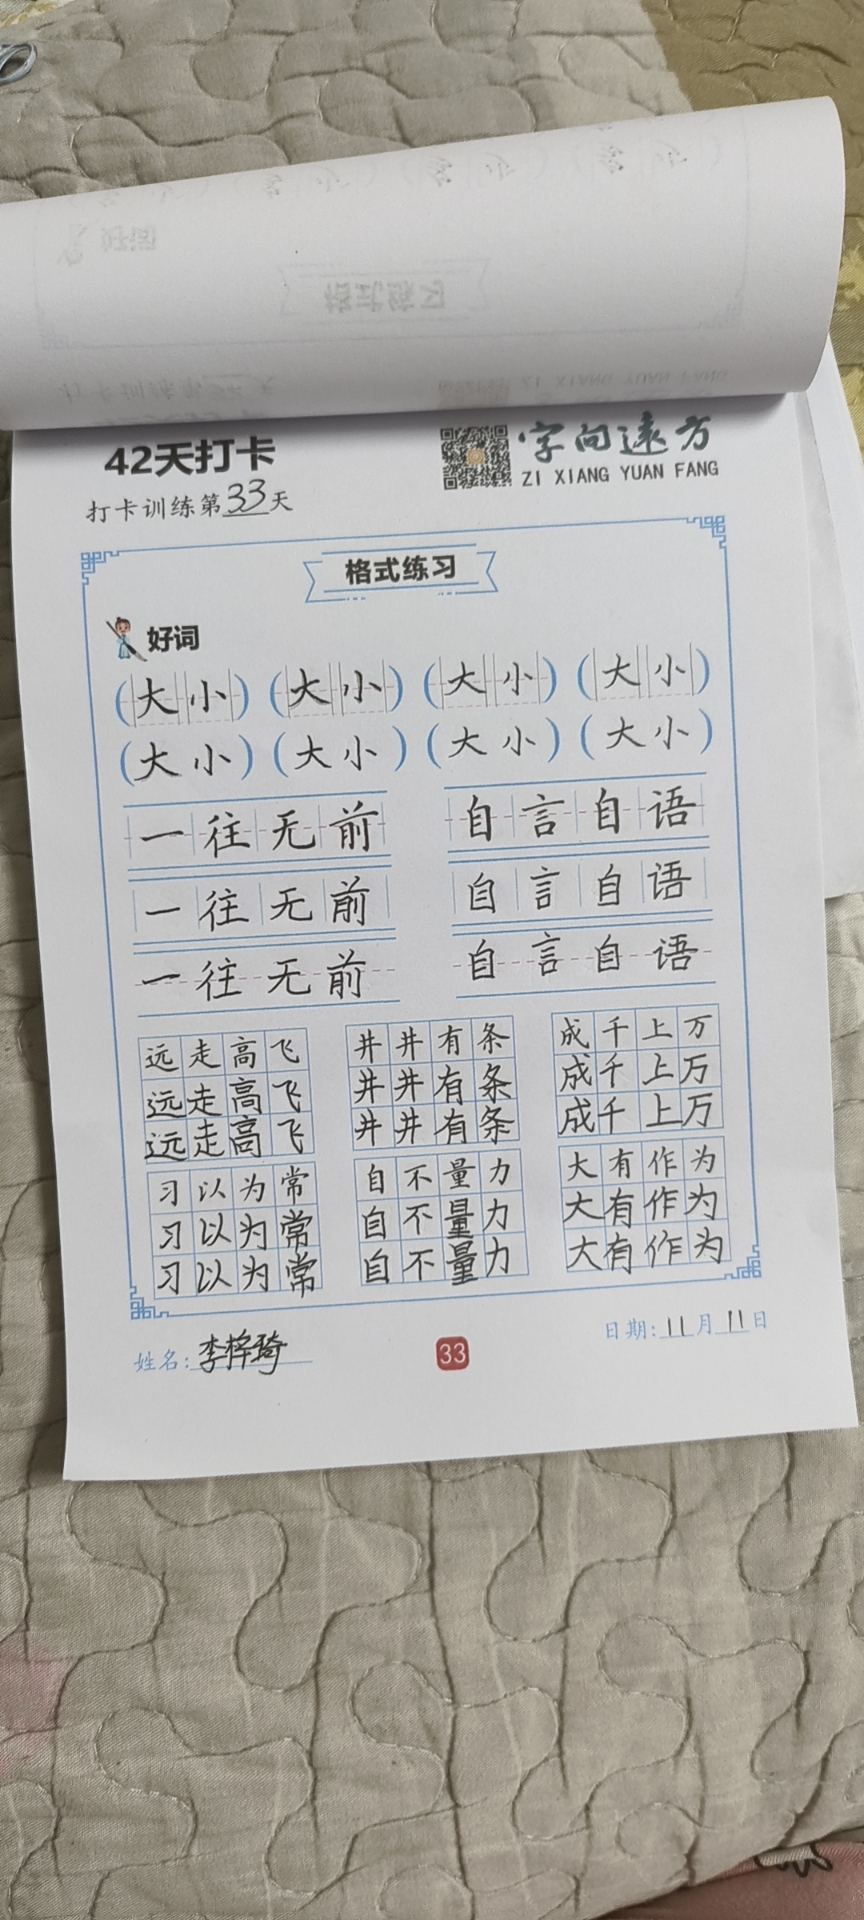 42天打卡
字向远方
ZI XIANG YUAN FANG
打卡训练第33天
格式练习
好词
(大小) (大小) (大小) (大小)
(大小) (大小) (大小) (大小)
一往无前 自言自语
一往无前 自言自语
一往无前 自言自语
远走高飞 井井有条 成千上万
远走高飞 井井有条 成千上万
远走高飞 井井有条 成千上万
习以为常 自不量力 大有作为
习以为常 自不量力 大有作为
习以为常 自不量力 大有作为
姓名:李梓琦
33
日期:11月11日